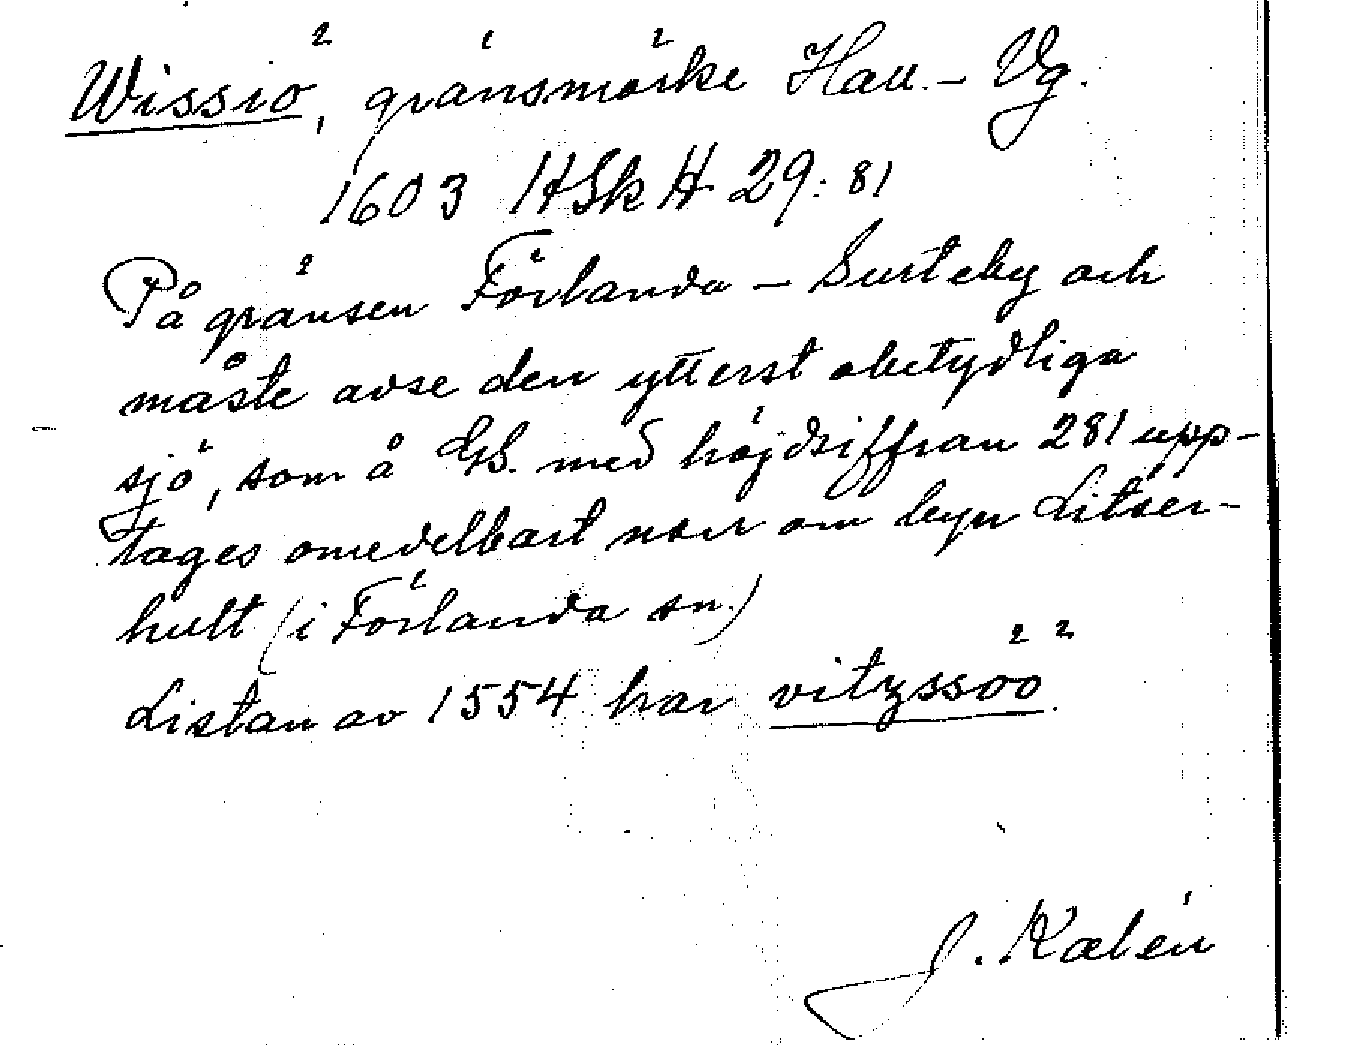 Wissiö, gränsmärke Hall.- Vg.
1603 HSkH 29:81
På gränsen Förlanda – Surteby och
måste avse den ytterst obetydliga
sjö, som å GS. med höjdsiffran 281 upp-
tages omedelbart norr om byn Litser-
hult (i Förlanda sn.)
Listan av 1554 har vitzssöö.
J. Kalén